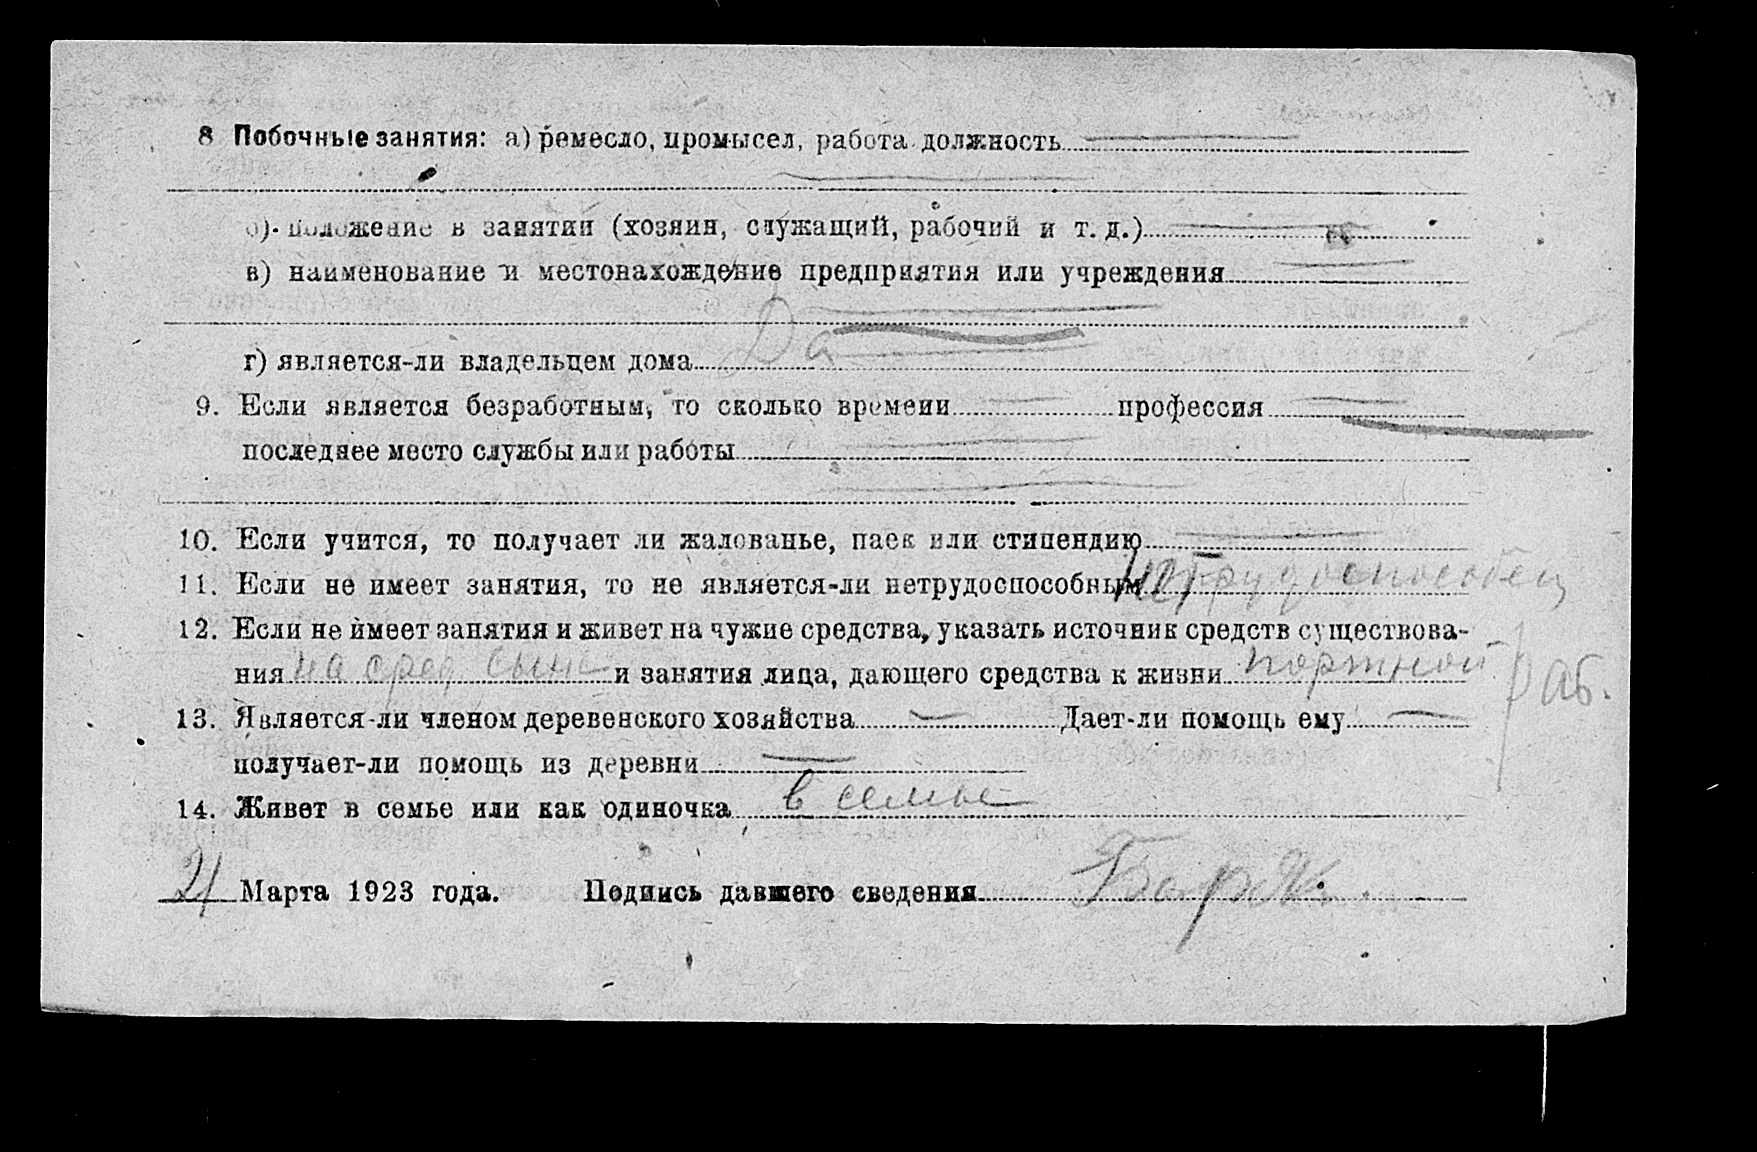 8 Побочные занятия: а) ремесло, промысел, работа должность
б). положение в занятии (хозяин, служащий, рабочий и т. д.)
в) наименование и местонахождение предприятия или учреждения
г) является-ли владельцем дома Да
9. Если является безработным, то сколько времени профессия
последнее место службы или работы
10. Если учится, то получает ли жалованье, паек или стипендию
11. Если не имеет занятия, то не является-ли нетрудоспособным нетрудоспособен
12. Если не имеет занятия и живет на чужие средства, указать источник средств существова-
ния на сред сына и занятия лица, дающего средства к жизни портной раб.
13. Является-ли членом деревенского хозяйства Дает-ли помощь ему
получает-ли помощь из деревни
14. Живет в семье или как одиночка в семье
21 Марта 1923 года. Подпись давшего сведения